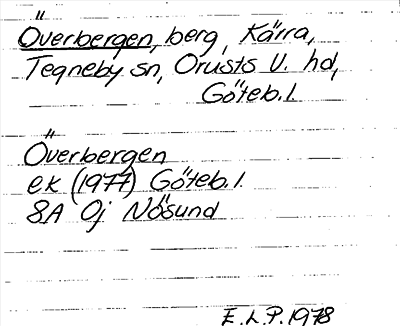 Överbergen, berg, Kärra,
Tegneby sn, Orusts V. hd,
Göteb. l.
Överbergen
ek (1977) Göteb. l.
8A 0j Nösund
E.L.P. 1978